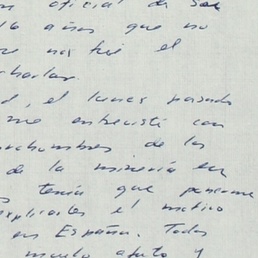 oficial de
16 años que no
nos fué el
charlas.
d, el lunes pasado
me entrevisté con
prohombres de los
de la minería en
tenía que ponerme
explicarles el motivo
en España. Todos
mucho afecto y